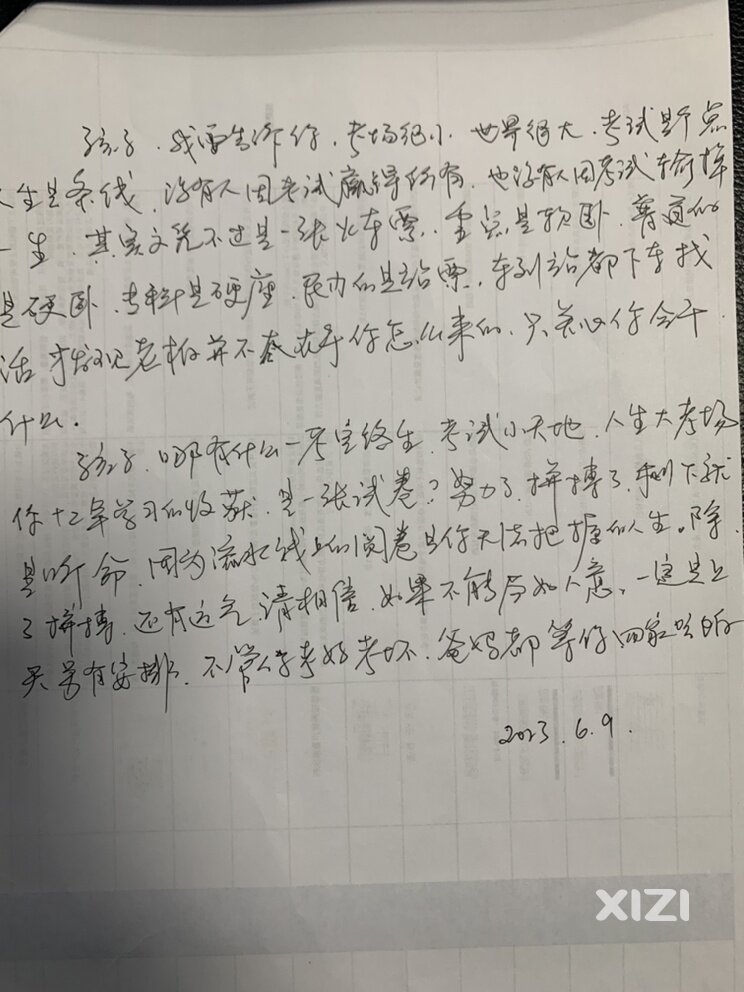 孩子，我要告诉你，考场很小，世界很大，考试是个点
人生是条线，没有人因考试赢得所有，也没有人因考试输掉
一生，其实文凭不过是一张火车票，重点是软卧，普通的
是硬卧，专科是硬座，民办的是站票，车到站都下车找
活，才发现老板并不太在乎你怎么来的，只关心你会干
什么。
孩子，哪有什么一考定终生，考试小天地，人生大考场
你十二年学习的收获，是一张试卷？努力了，拼搏了，剩下就
是听命，因为流水线上的阅卷是你无法把握的人生。除
了拼搏，还有运气，请相信，如果不能尽如人意，一定是上
天另有安排，不管你考好考坏，爸妈都等你回家吃饭
2023.6.9.
XIZI